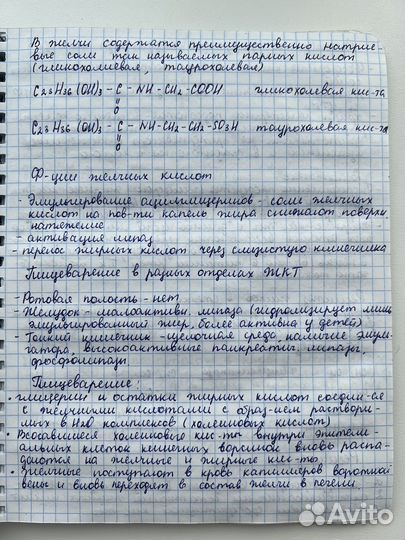 В желчи содержатся преимущественно натрие-
вые соли так называемых парных кислот
(гликохолиевая, таурохолевая)
C23H36(OH)3 - C - NH - CH2 - COOH гликохолевая кис-та
O
C23H36(OH)3 - C - NH - CH2 - CH2 - SO3H таурохолевая кис-та
O
Ф-ции желчных кислот
- Эмульгирование ацилглицеринов - соли желчных
кислот на пов-ти капель жира снижают поверхн.
натяжение
- активация липаз
- перенос жирных кислот через слизистую кишечника
Пищеварение в разных отделах ЖКТ
- Ротовая полость - нет
- Желудок - малоактивн. липаза (гидролизирует лишь
эмульгированный жир, более активна у детей)
- Тонкий кишечник - щелочная среда, наличие эмуль-
гатора, высокоактивные панкреатич. липазы,
фосфолипазы.
Пищеварение:
• глицерин и остатки жирных кислот соедин-ся
с желчными кислотами с образ-ием раствори-
мых в H2O комплексов (холеиновых кислот)
• Всосавшиеся холеиновые кис-ты внутри эпители-
альных клеток кишечных ворсинок вновь распа-
даются на желчные и жирные кис-ты
• Желчные поступают в кровь капилляров воротной
вены и вновь переходят в состав желчи в печени.
Avito